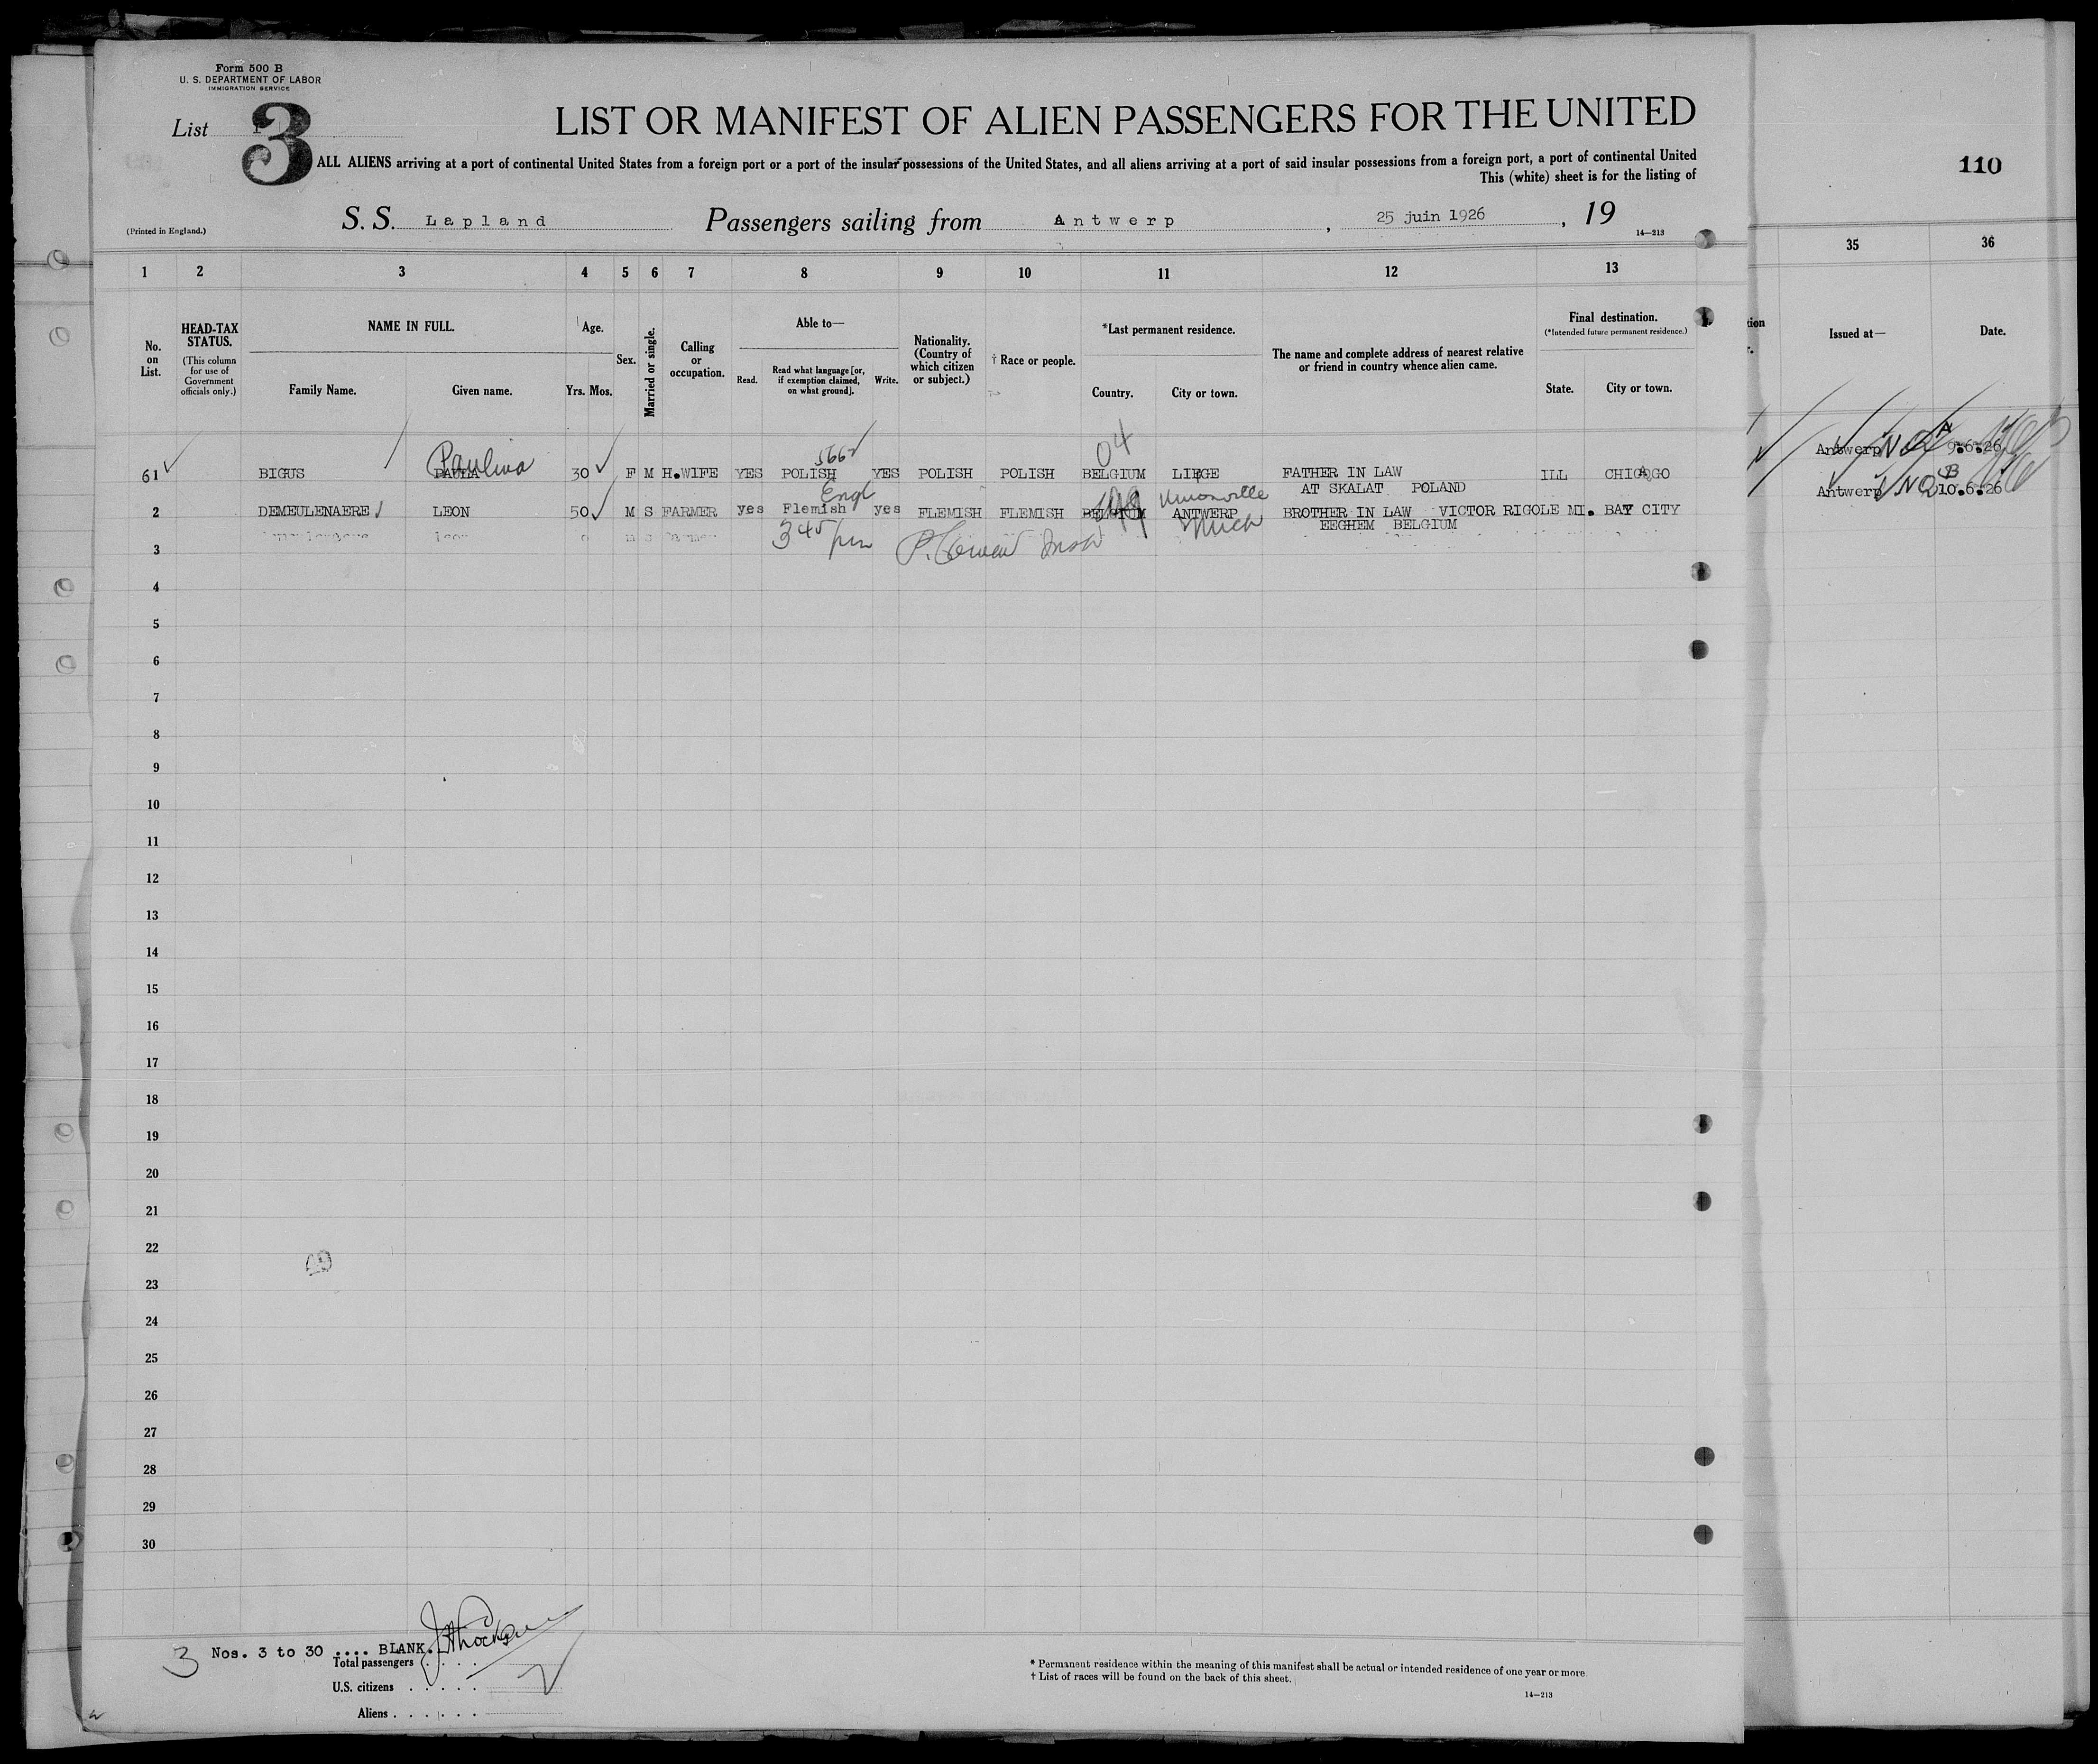 Form 500 B
U. S. DEPARTMENT OF LABOR
IMMIGRATION SERVICE
List 3
LIST OR MANIFEST OF ALIEN PASSENGERS FOR THE UNITED
ALL ALIENS arriving at a port of continental United States from a foreign port or a port of the insular possessions of the United States, and all aliens arriving at a port of said insular possessions from a foreign port, a port of continental United
This (white) sheet is for the listing of
110
(Printed in England.)
S. S. Lapland Passengers sailing from Antwerp, 25 juin 1926, 19
14—213
1 2 3 4 5 6 7 8 9 10 11 12 13 35 36
No. on List.
HEAD-TAX STATUS.
(This column for use of Government officials only.)
NAME IN FULL.
Family Name. Given name.
Age.
Yrs. Mos.
Sex.
Married or single.
Calling or occupation.
Able to—
Read. Read what language [or, if exemption claimed, on what ground]. Write.
Nationality. (Country of which citizen or subject.)
† Race or people.
*Last permanent residence.
Country. City or town.
The name and complete address of nearest relative or friend in country whence alien came.
Final destination.
(*Intended future permanent residence.)
State. City or town.
Issued at— Date.
5662 04
Paulina
61 BIGUS PAULA 30 F M H.WIFE YES POLISH YES POLISH POLISH BELGIUM LIEGE FATHER IN LAW ILL CHICAGO Antwerp 9.6.26
AT SKALAT POLAND
Engl Unionville
2 DEMEULENAERE LEON 50 M S FARMER yes Flemish yes FLEMISH FLEMISH BELGIUM ANTWERP BROTHER IN LAW VICTOR RIGOLE MI. BAY CITY Antwerp 10.6.26
Mich EEGHEM BELGIUM
345 pm
3
4
5
6
7
8
9
10
11
12
13
14
15
16
17
18
19
20
21
22
23
24
25
26
27
28
29
30
3 Nos. 3 to 30 .... BLANK.
Total passengers . . . .
U.S. citizens . . . . .
Aliens . . . . . .
* Permanent residence within the meaning of this manifest shall be actual or intended residence of one year or more.
† List of races will be found on the back of this sheet.
14—213